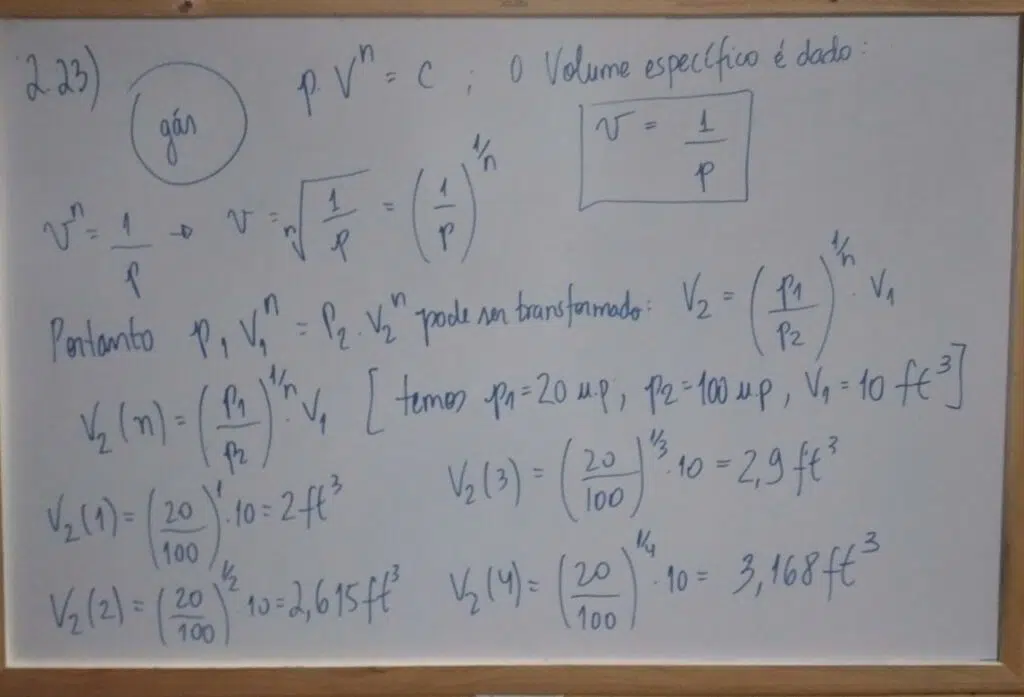 2.23) gás p.Vⁿ = C ; O Volume específico é dado:
v = 1/p
vⁿ = 1/p → v = ⁿ√(1/p) = (1/p)^(1/n)
Portanto p₁V₁ⁿ = P₂.V₂ⁿ pode ser transformado: V₂ = (p₁/p₂)^(1/n) . V₁
V₂(n) = (p₁/p₂)^(1/n) . V₁ [temos p₁=20 u.p, p₂=100 u.p, V₁=10 ft³]
V₂(1) = (20/100)^1 . 10 = 2 ft³
V₂(2) = (20/100)^(1/2) . 10 = 2,615 ft³
V₂(3) = (20/100)^(1/3) . 10 = 2,9 ft³
V₂(4) = (20/100)^(1/4) . 10 = 3,168 ft³